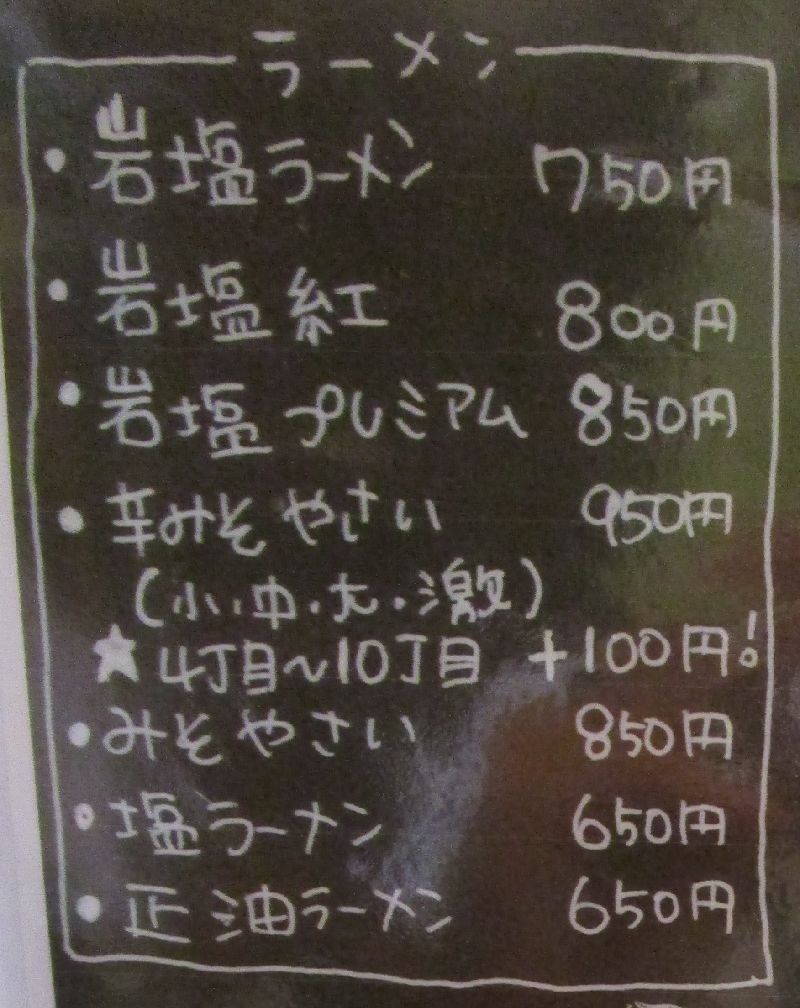 ラーメン
・岩塩ラーメン 750円
・岩塩 紅 800円
・岩塩 プレミアム 850円
・辛みそやさい 950円
(小・中・大・激)
★4丁目~10丁目 +100円!
・みそやさい 850円
・塩ラーメン 650円
・正油ラーメン 650円